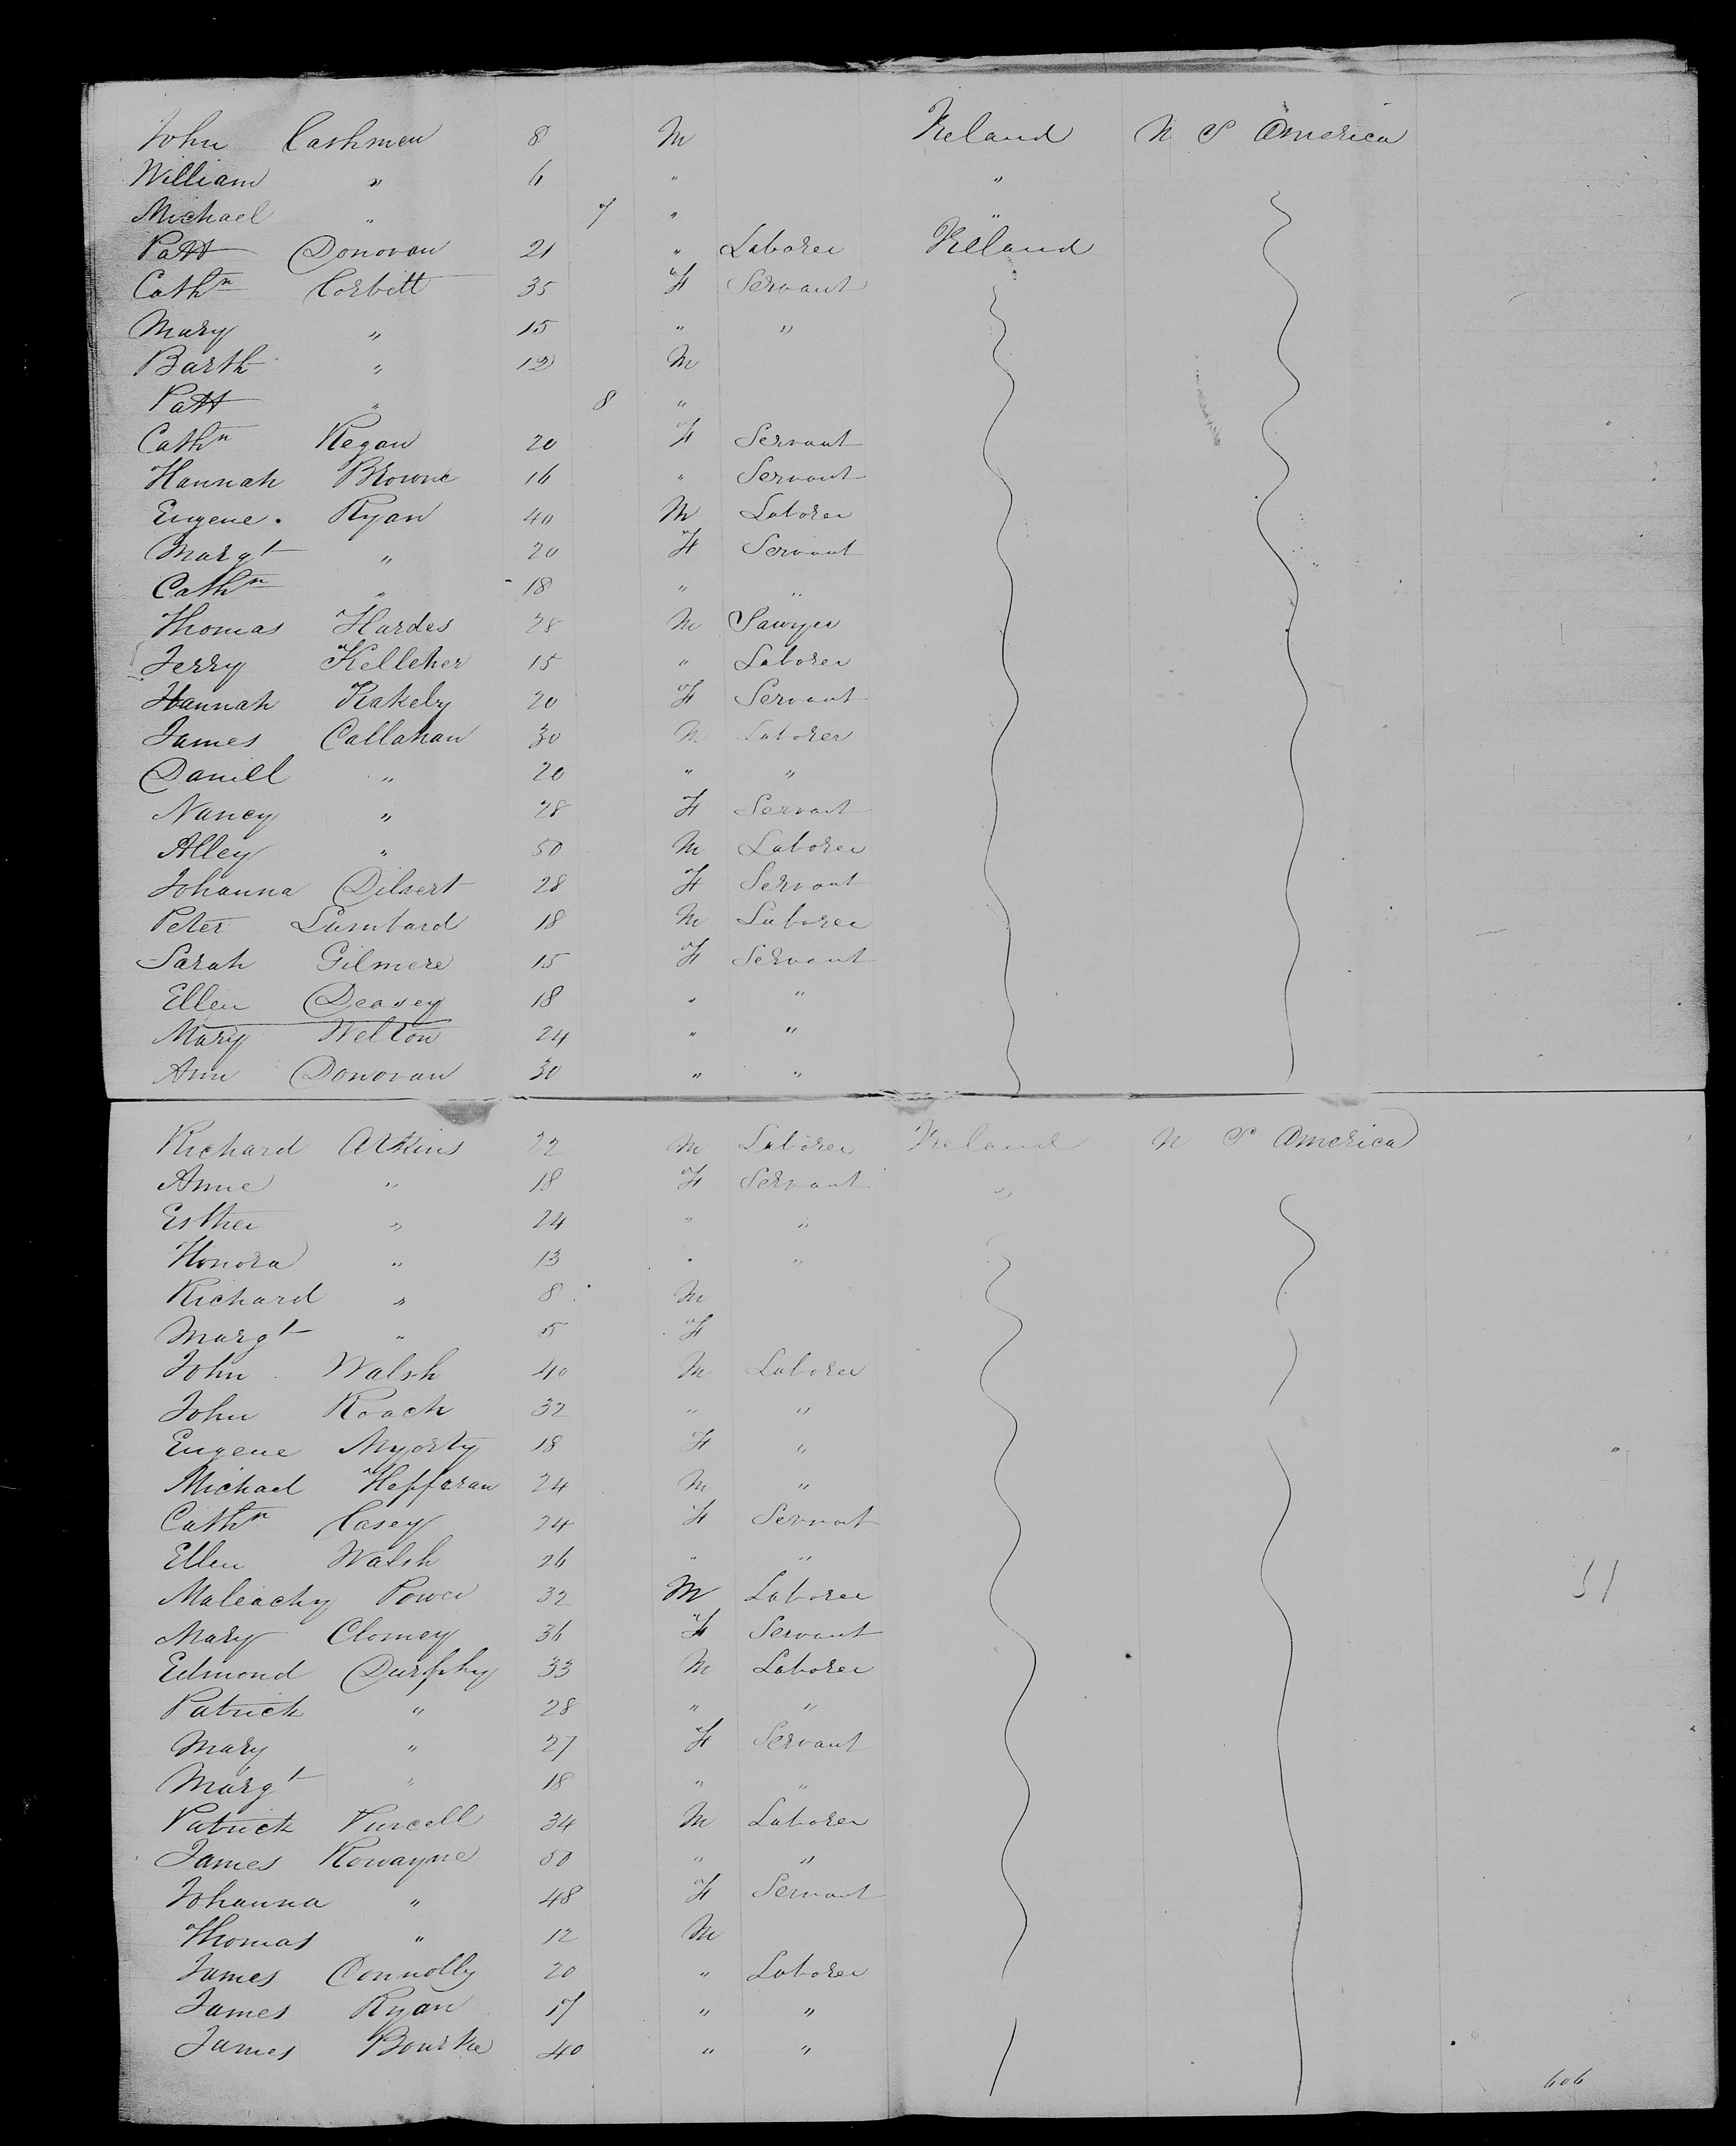 John Cashmen 8 M Ireland N S America
William " 6 " "
Michael " 7 " "
Patt Donovan 21 " Laborer Ireland
Cathn Corbitt 35 F Servant
Mary " 15 " "
Barth " 12 M
Patt " 8 "
Cathn Regan 20 F Servant
Hannah Browne 16 " Servant
Eugene Ryan 40 M Laborer
Margt " 20 F Servant
Cathn " 18 " "
Thomas Hardes 28 M Sawyer
Jerry Kelleher 15 " Laborer
Hannah Kakely 20 F Servant
James Callahan 30 M Laborer
Daniell " 20 " "
Nancy " 28 F Servant
Alley " 50 M Laborer
Johanna Dilsert 28 F Servant
Peter Lumbard 18 M Laborer
Sarah Gilmere 15 F Servant
Ellen Deasey 18 " "
Mary Welton 24 " "
Ann Donovan 30 " "
Richard Atkins 22 M Laborer Ireland N S America
Anne " 18 F Servant "
Esther " 24 " "
Honora " 13 " "
Richard " 8 M
Margt " 5 F
John Walsh 40 M Laborer
John Roach 32 " "
Eugene 18 F "
Michael Hefferan 24 M "
Cathn Casey 24 F Servant
Ellen Walsh 26 " "
Maleachy Power 32 M Laborer
Mary Clomey 36 F Servant
Edmond Durphy 33 M Laborer
Patrick " 28 " "
Mary " 27 F Servant
Margt " 18 " "
Patrick Purcell 34 M Laborer
James Rowayne 50 " "
Johanna " 48 F Servant
Thomas " 12 M
James Connolly 20 " Laborer
James Ryan 17 " "
James Bourke 40 " "
51
606